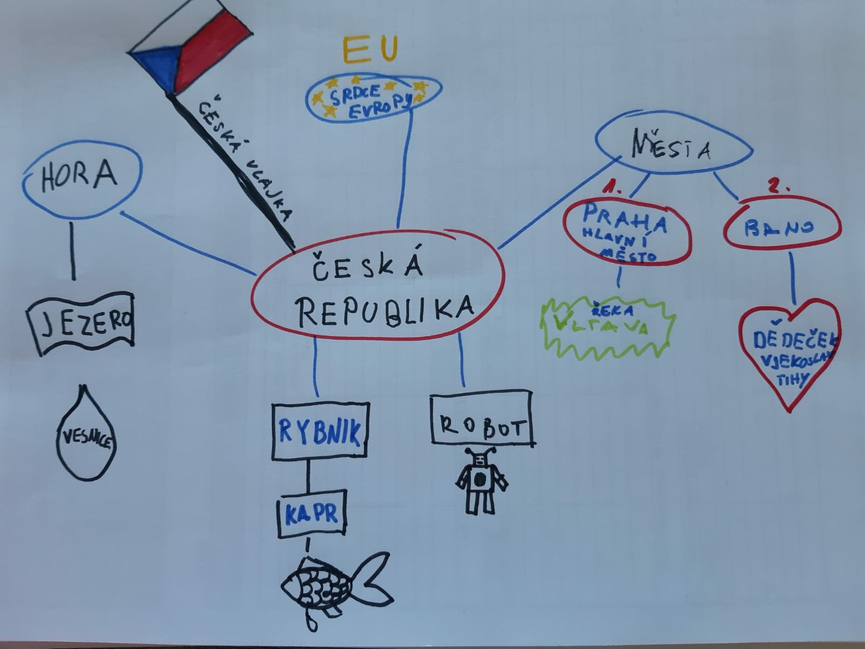 EU
SRDCE
EVROPY
ČESKÁ VLAJKA
HORA
MĚSTA
1.
PRAHA
HLAVNÍ
MĚSTO
2.
BRNO
ČESKÁ
REPUBLIKA
JEZERO
ŘEKA
VLTAVA
DĚDEČEK
VJEKOSLAV
TIHY
VESNICE
RYBNIK
ROBOT
KAPR